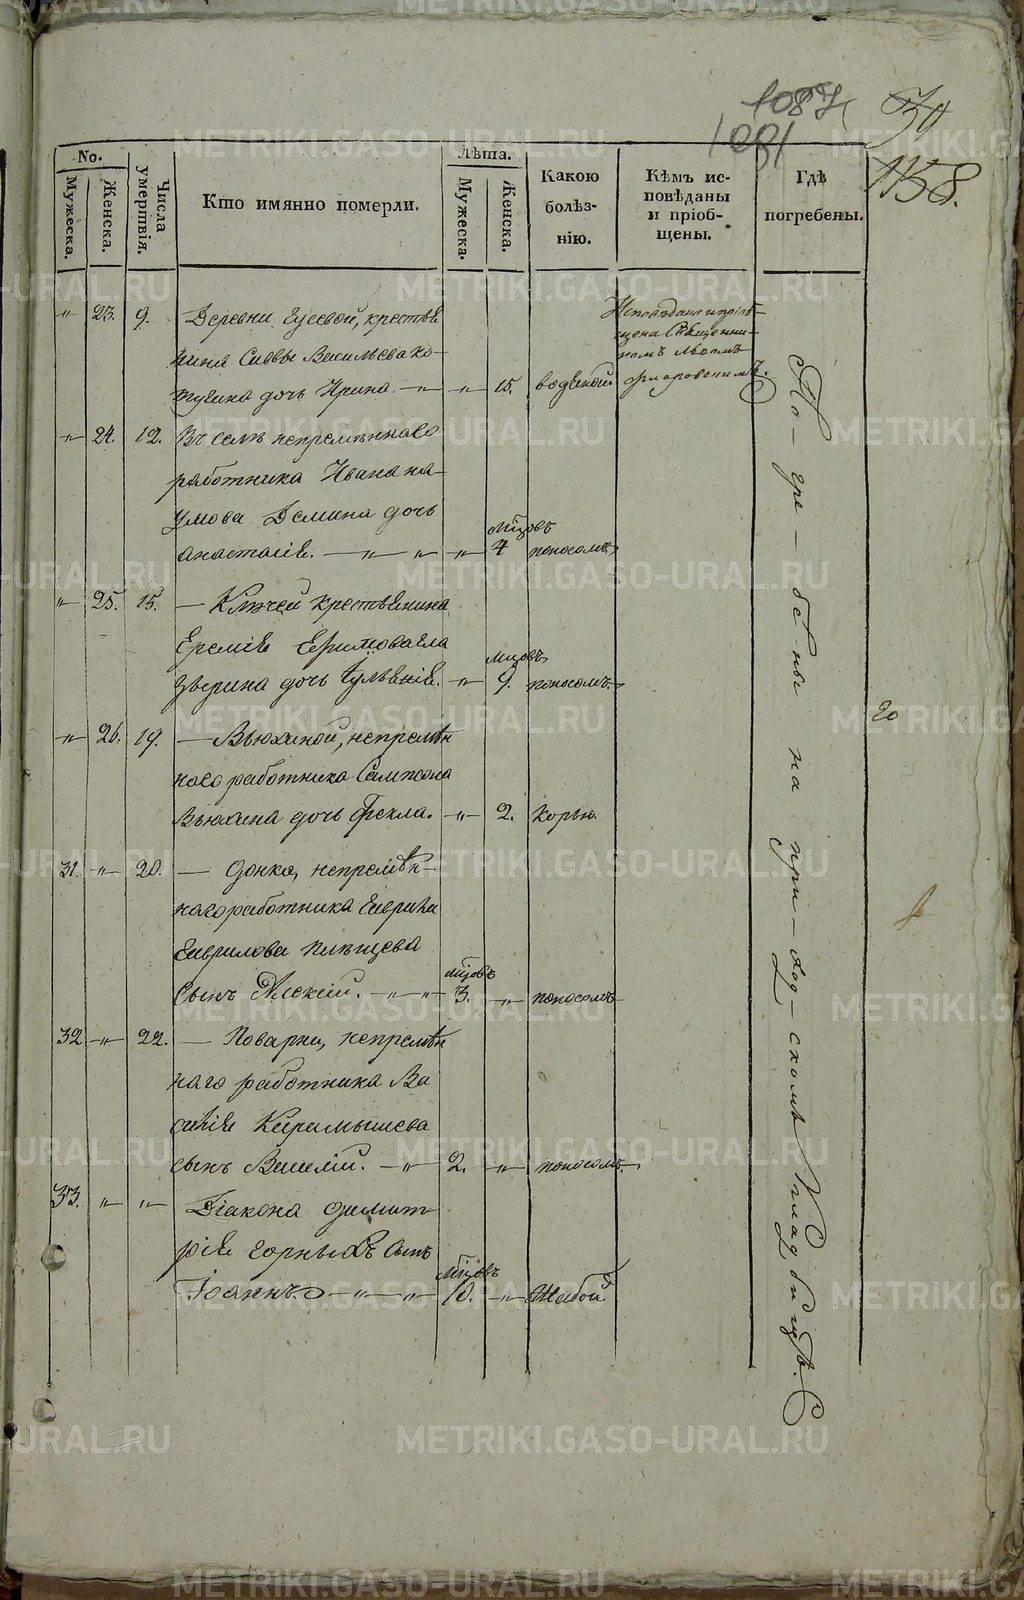 1087
1091
70
1158.
No.
Мужеска.
Женска.
Числа умертвія.
Кто имянно померли.
Лѣта.
Мужеска.
Женска.
Какою болѣз-
нію.
Кѣмъ ис-
повѣданы
и пріоб-
щены.
Гдѣ
погребены.
23. 9. Деревни Гусевой, крестья
нина Саввы Васильева Ко-
тугина дочь Ирина. 15. водяной.
Исповѣдана и пріоб-
щена Священни-
комъ
24. 12. Въ селѣ непремѣннаго
работника Ивана На-
умова Демина дочь
Анастасія. мѣсцовъ 4 поносомъ
25. 15. — Ключей крестьянина
Еремія Ефимова
Зверина дочь Іульянія. мѣсцовъ 9. поносомъ.
26. 19. — Вьюхиной, непремѣн
наго работника Сампсона
Вьюхина дочь Фекла. 2. Корью.
31. 20. — непремѣн-
наго работника Гаврила
Гаврилова Пльщева
сынъ Алексій. мѣсцовъ 3. поносомъ
32 22. — Поварни, непремѣн
наго работника Ва
силія Карамышева
сынъ Василій. 2. поносомъ.
33. Діакона Димит
рія Горныхъ сынъ
Іоаннъ. мѣсцовъ 10. Жабой
По-гре-бены на при-ход-скомъ кладбищѣ.
20
METRIKI.GASO-URAL.RU